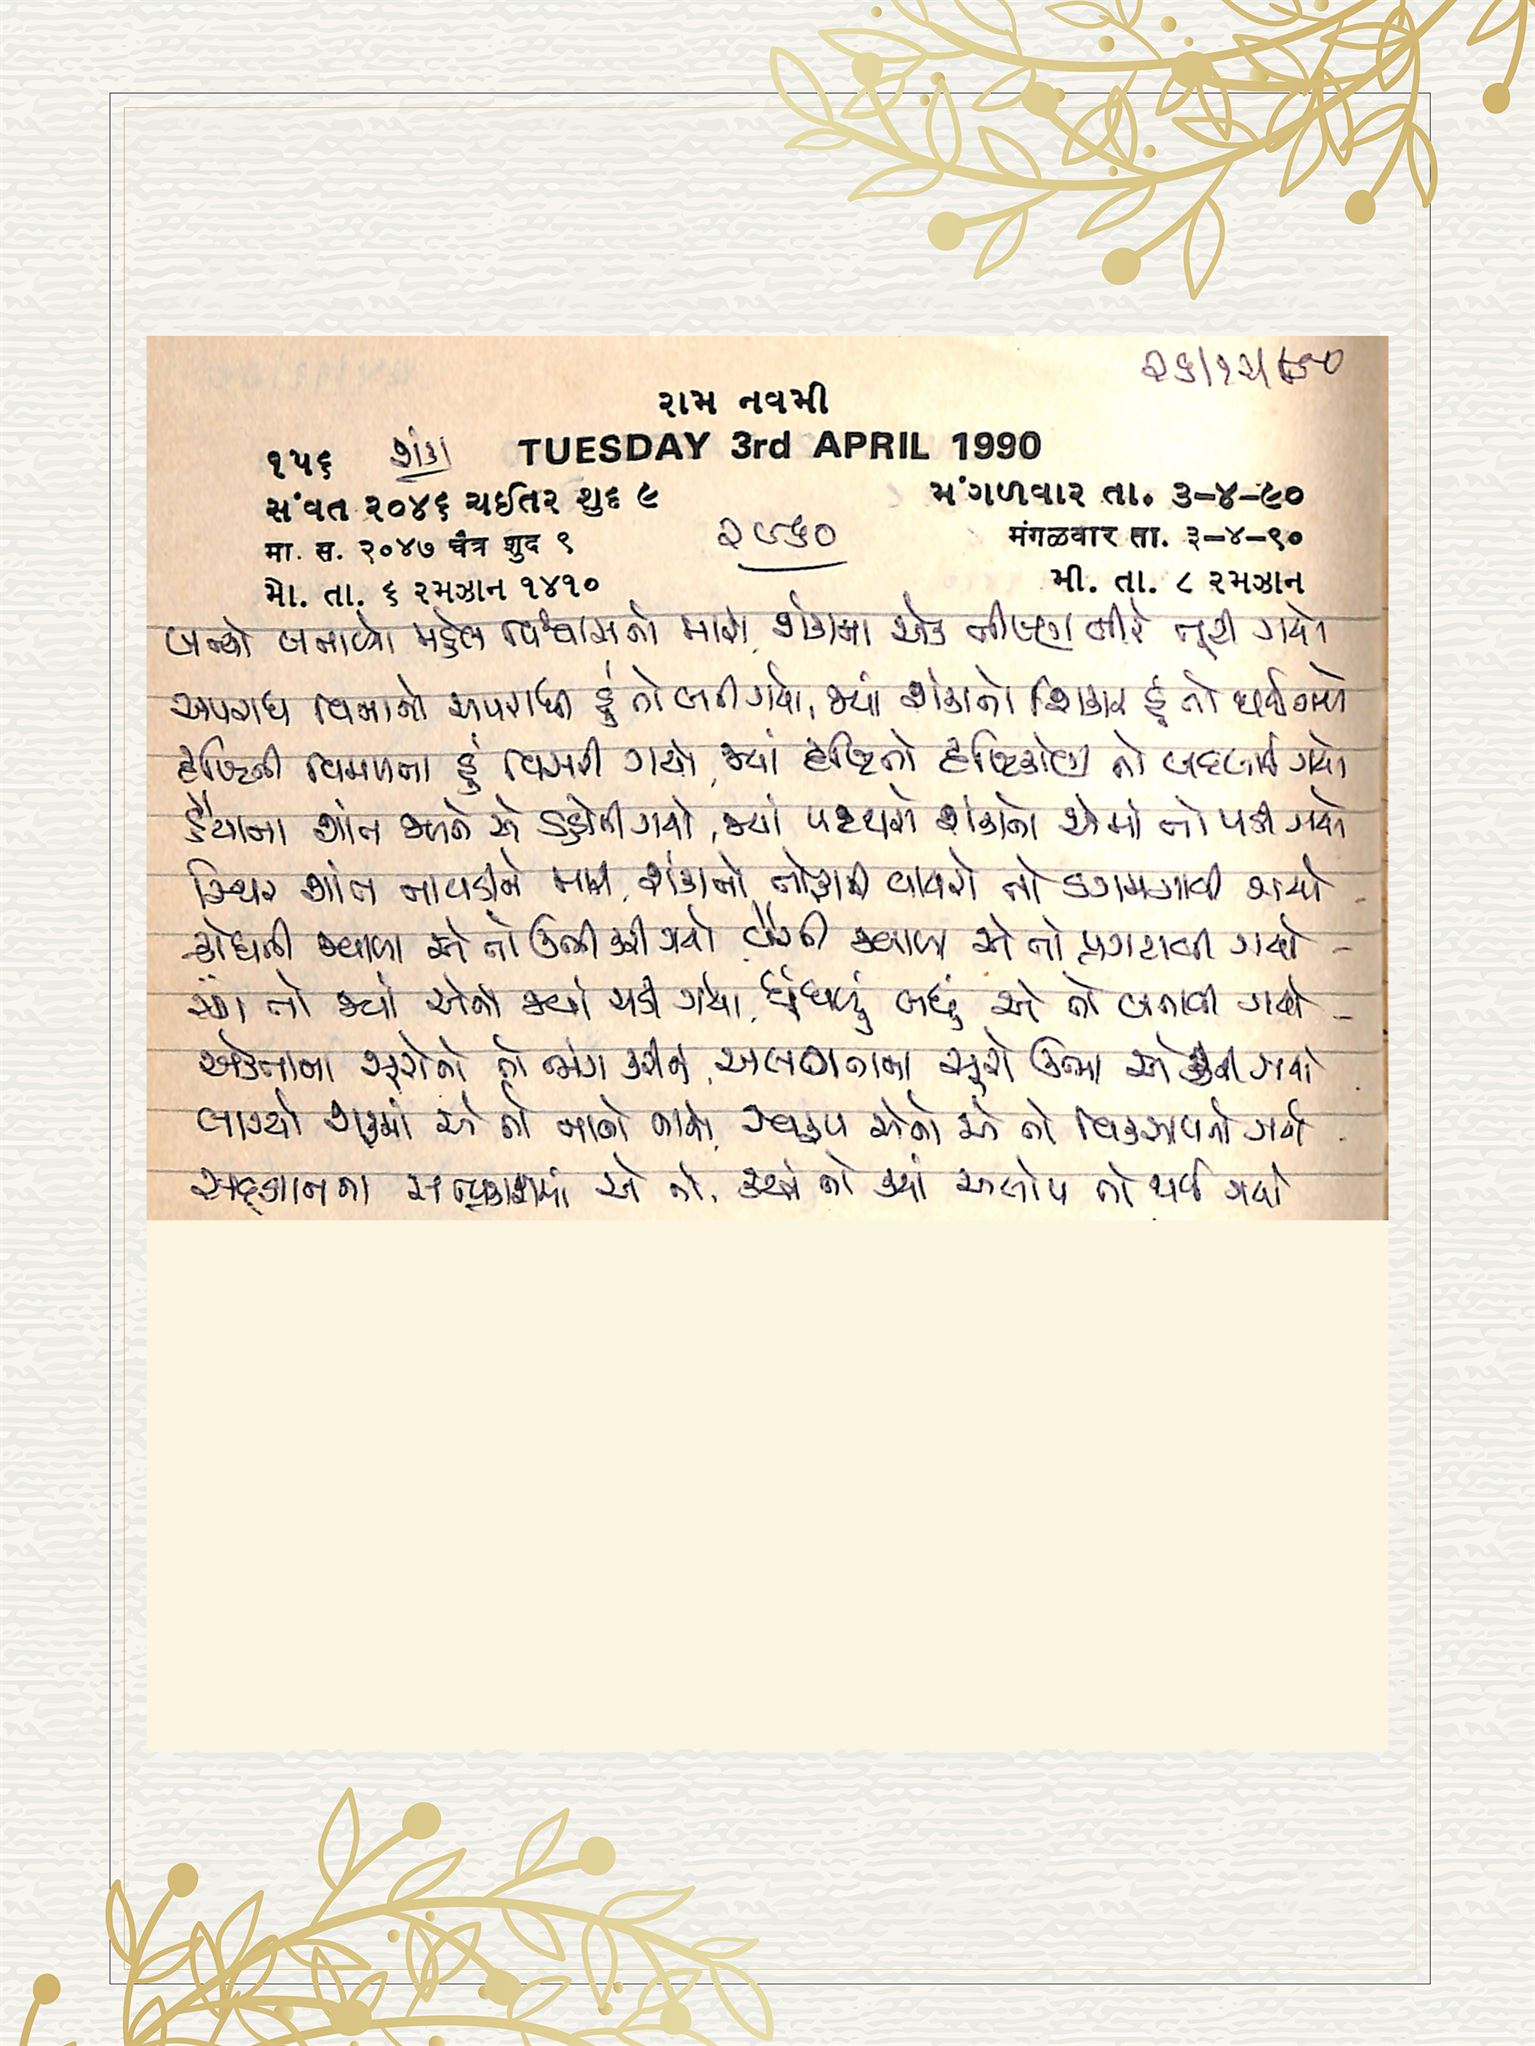 ૨૬/૧૨/૯૦
રામ નવમી
૧૫૬ શંકા TUESDAY 3rd APRIL 1990
સંવત ૨૦૪૬ ચઈતર શુદ ૯ મંગળવાર તા. ૩-૪-૯૦
मा. स. ૨૦૪૭ चैत्र शुद ९ मंगळवार ता. ३-૪-९०
મો. તા. ૬ રમઝાન ૧૪૧૦ મી. તા. ૮ રમઝાન
બન્યો બનાવ્યો મહેલ વિશ્વાસનો મારો, શંકાના એક તીક્ષ્ણ તીરે તૂટી ગયો
અપરાધ વિનાનો અપરાધી હું તો બની ગયો, જ્યાં શંકાનો શિકાર હું તો થઈ ગયો
દૃષ્ટિની વિમળતા હું વિસરી ગયો, જ્યાં દૃષ્ટિનો દૃષ્ટિકોણ તો બદલાઈ ગયો
હૈયાના શાંત જળને એ ડહોળી ગયો, જ્યાં પથ્થરો શંકાનો એમાં તો પડી ગયો
સ્થિર શાંત નાવડીને મારી, શંકાનો તોફાની વાયરો તો ડગમગાવી ગયો
ક્રોધની જ્વાળા એ તો ઊભી કરી ગયો, વૈરની જ્વાળા એ તો પ્રગટાવી ગયો
રંગ તો જ્યાં એનો જ્યાં ચડી ગયો, ધૂંધળું બધું એ તો બનાવી ગયો
એકતાના સૂરોનો તો ભંગ કરીને, અલગતાના સૂરો ઊભા એ કરી ગયો
લાગ્યો શરૂમાં એ તો નાનો નાનો, સ્વરૂપ એનો એ તો વિકસાવતો ગયો
સદ્જ્ઞાનના સત્પ્રકાશમાં એ તો, ક્યાં ને ક્યાં અલોપ તો થઈ ગયો